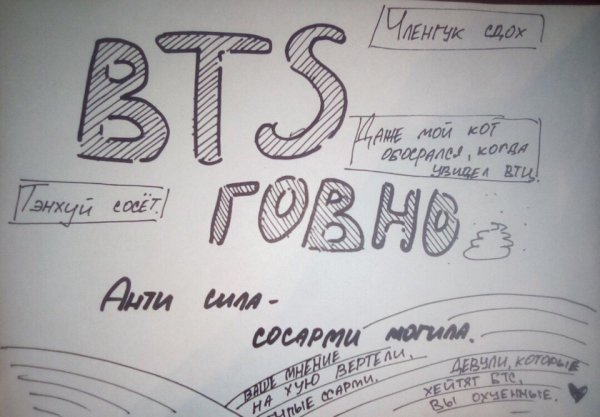 BTS
Членгук сдох
Даже мой кот
обосрался, когда
увидел втц.
Тэнхуй сосёт.
говно
Анти сила-
сосарми могила.
Ваше мнение
на хую вертели,
тупые ссарми.
Девули, которые
хейтят БТС,
вы охуенные.